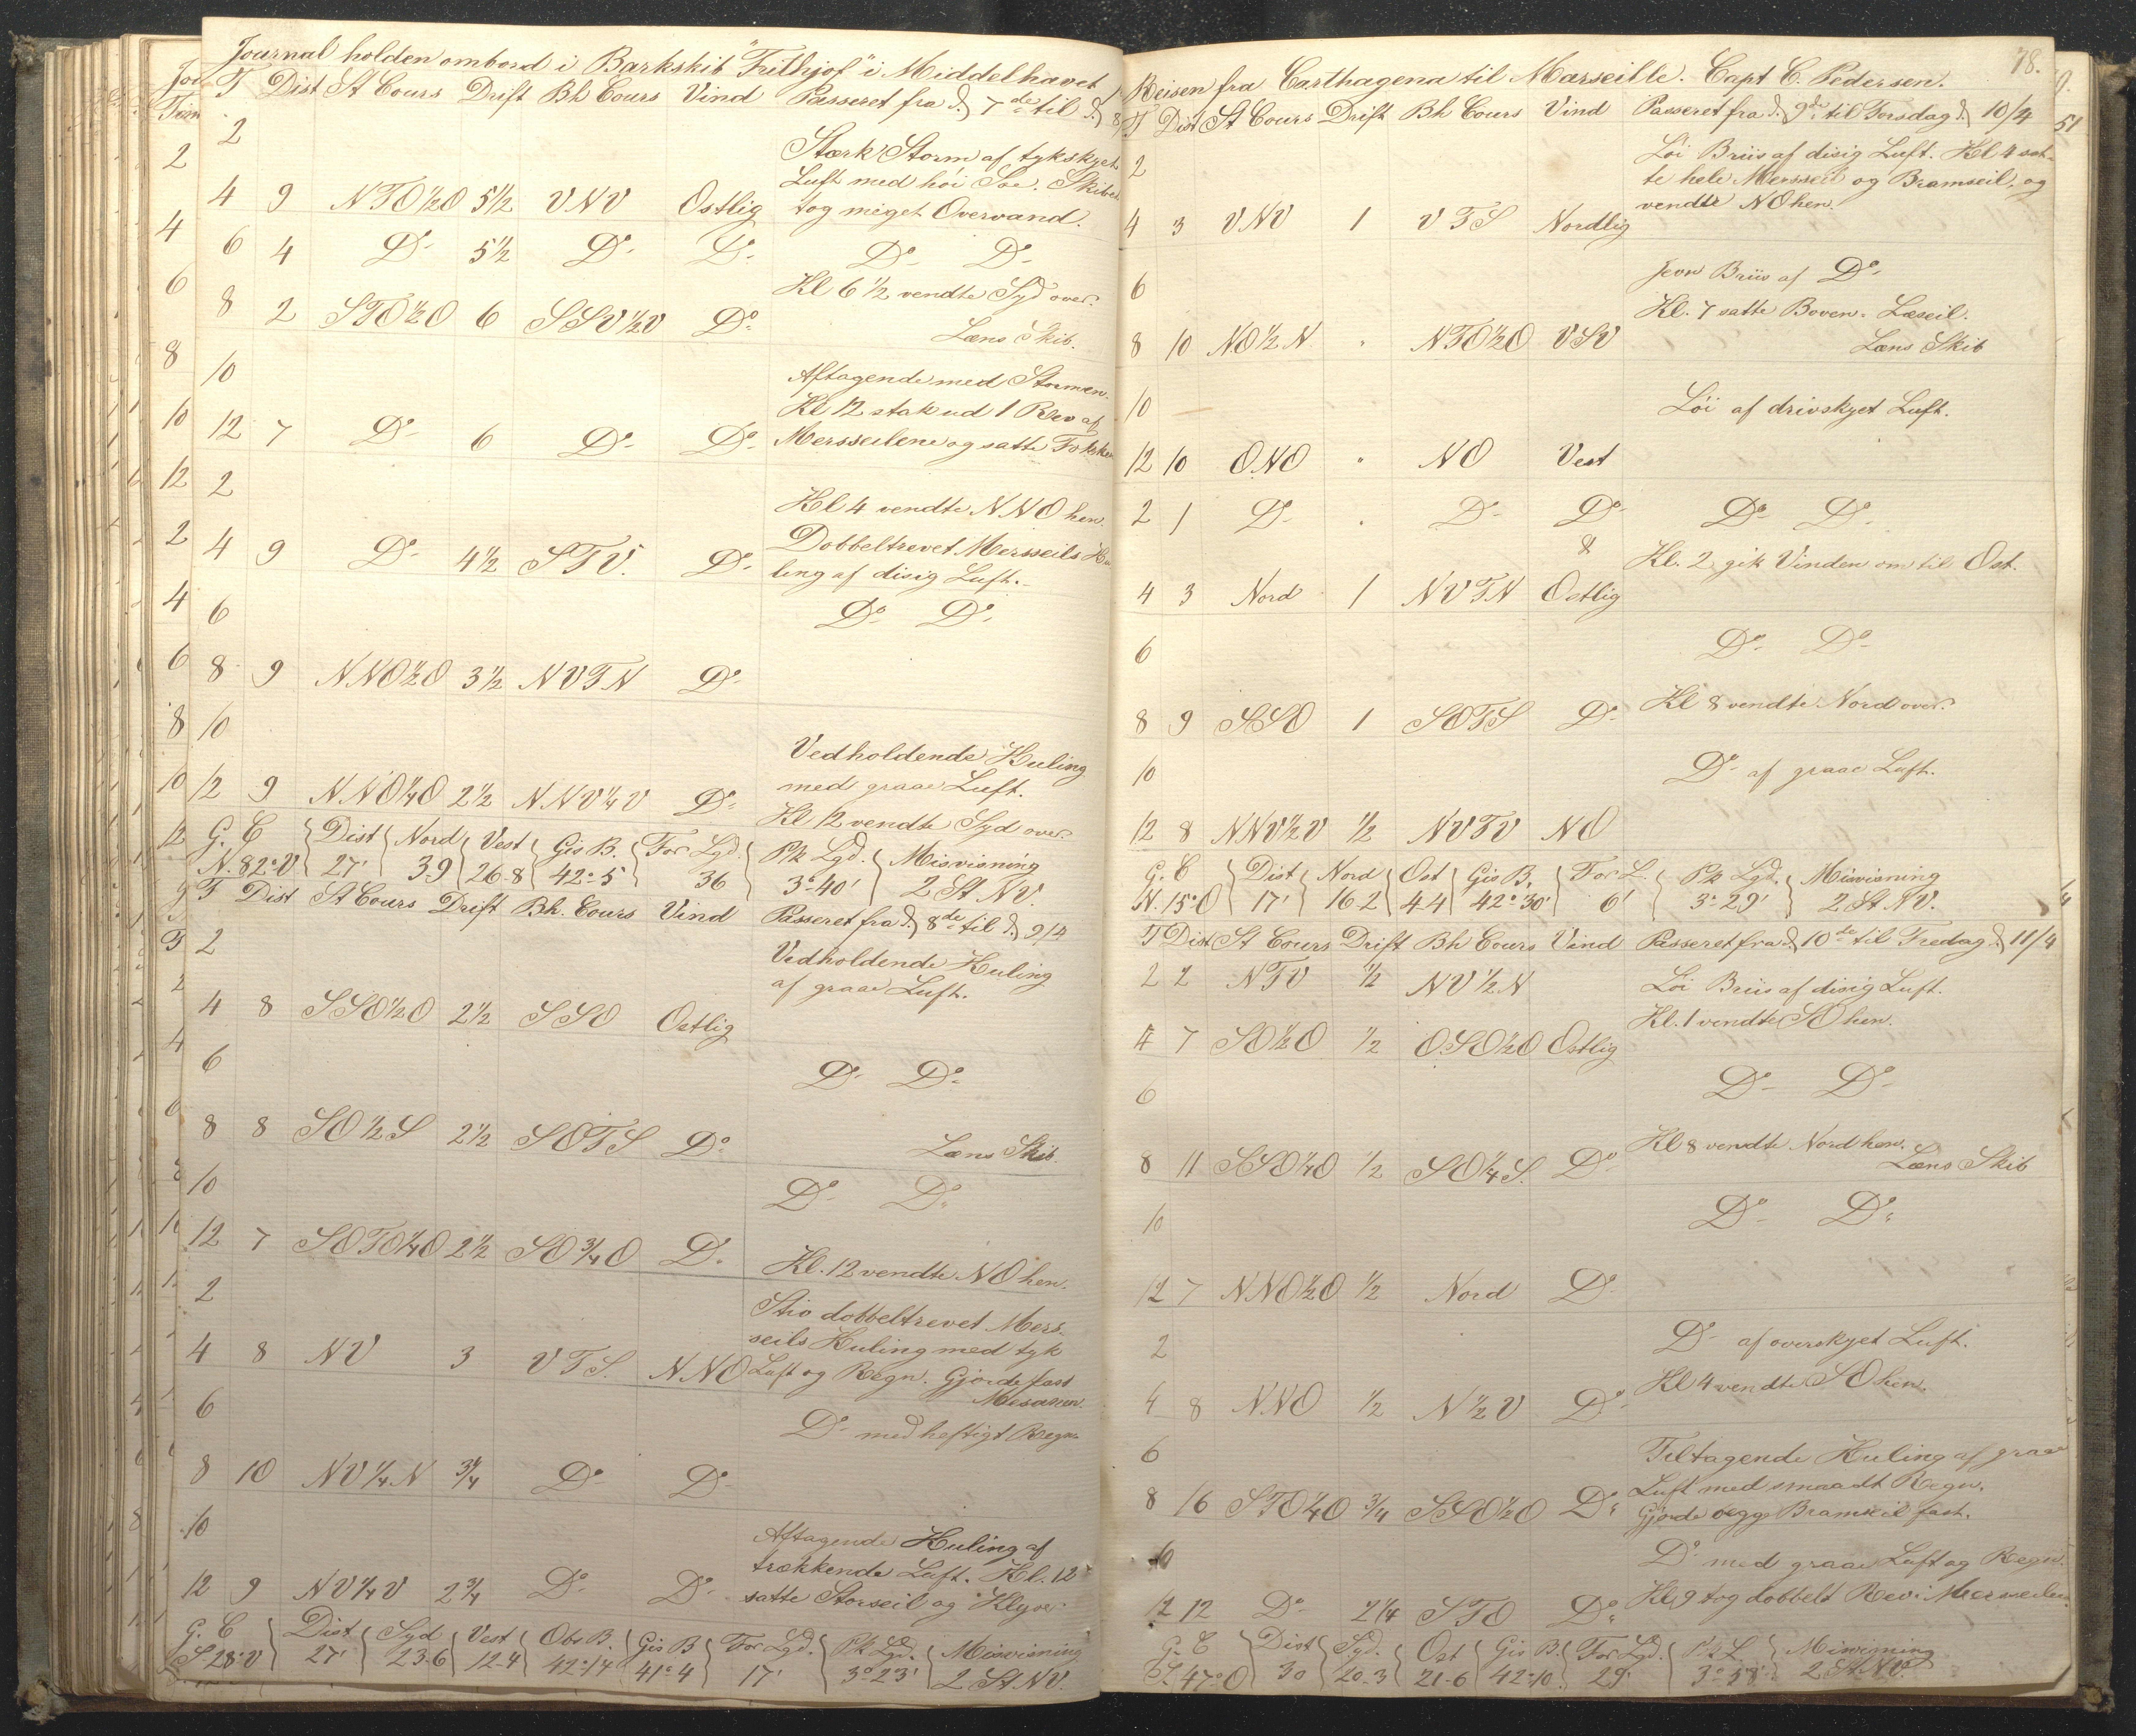 Journal holden ombord i Barkskib "Frithjof" i Middelhavet
T Dist St Cours Drift Bh Cours Vind Passeret fra d. 7de til d. 8
2 Stærk Storm af tykskyet
Luft med høi Søe. Skibet
4 9 NTO½O 5½ VNV Ostlig tog meget Overvand.
6 4 Do 5½ Do Do Do Do
Kl 6½ vendte Syd over.
8 2 STO½O 6 SSV½V Do Læns Skib.
10 Aftagende med Stormen.
Kl 12 stak ud 1 Rev af
12 7 Do 6 Do Do Mersseilene og satte Fokken
2 Kl 4 vendte NNO hen.
Dobbeltrevet Mersseils Hu
4 9 Do 4½ STV. Do ling af disig Luft.
6 Do Do
8 9 NNO½O 3½ NVTN Do
10 Vedholdende Kuling
med graae Luft.
12 9 NNO¼O 2½ NNV¼V Do Kl 12 vendte Syd over.
G. C Dist Nord Vest Gis B. For Lgd. Pk Lgd. Misvisning
N. 82° V 27' 3-9 26-8 42°-5 36 3°-40' 2 St NV.
T Dist St Cours Drift Bh. Cours Vind Passeret fra d. 8de til d. 9/4
2 Vedholdende Kuling
af graae Luft.
4 8 SSO½O 2½ SSO Ostlig
6 Do Do
8 8 SO½S 2½ SOTS Do Læns Skib.
10 Do Do
12 7 SOTO¼O 2½ SO¾O Do Kl. 12 vendte NO hen.
2 Stiv dobbeltrevet Mers-
seils Kuling med tyk
4 8 NV 3 VTS. NNO Luft og Regn. Gjorde fast
Mesanen.
6 Do med heftigt Regn
8 10 NV¼N 3¾ Do Do
10 Aftagende Kuling af
trækkende Luft. Kl. 12
12 9 NV¼V 2¾ Do Do satte Storseil og Klyver
G. C Dist Syd Vest Obs B. Gis B For Lgd. Pk Lgd. Misvisning
S 28° V 27' 23-6 12-4 42°-14 41°-4 17' 3°-23' 2 St NV.
78.
Reisen fra Carthagena til Marseille. Capt C. Pedersen.
T Dist St Cours Drift Bh Cours Vind Passeret fra d. 9de til Torsdag d. 10/4
2 Løi Briis af disig Luft. Kl 4 sat-
te hele Mersseil og Bramseil, og
4 3 VNV 1 VTS Nordlig vendte NO hen.
6 Jevn Briis af Do
Kl. 7 satte Boven-Læseil.
8 10 NO½N " NTO½O VSV Læns Skib
10 Løi af drivskyet Luft.
12 10 ONO " NO Vest
2 1 Do " Do Do Do Do
&
Kl. 2 gik Vinden om til Ost.
4 3 Nord 1 NVTN Ostlig
6 Do Do
8 9 SSO 1 SOTS Do Kl 8 vendte Nord over.
10 Do af graae Luft.
12 8 NNV½V ½ NVTV NO
G. C Dist Nord Ost Gis B. For L. Pk Lgd. Misvisning
N. 15° O 17' 16-2 4-4 42°-30' 6' 3°-29' 2 St NV.
T Dist St Cours Drift Bh Cours Vind Passeret fra d. 10de til Fredag d. 11/4
2 2 NTV ½ NV½N Løi Briis af disig Luft.
Kl. 1 vendte SO hen.
4 7 SO½O ½ OSO½O Ostlig
6 Do Do
Kl 8 vendte Nord hen.
8 11 SSO¼O ½ SO¼S. Do Læns Skib
10 Do Do
12 7 NNO½O ½ Nord Do
2 Do af overskyet Luft.
4 8 NNO ½ N½V Do Kl 4 vendte SO hen.
6 Tiltagende Kuling af graae
Luft med smaadt Regn.
8 16 STO¼O ¾ SSO½O Do Gjorde begge Bramseil fast.
10 Do med graae Luft og Regn.
12 12 Do 2¼ STO Do Kl 9 tog dobbelt Rev i Mersseilene
G. C Dist Syd. Ost Gis B. For Lgd. Pk L. Misvisning
S. 47° O 30 20-3 21-6 42°-10' 29' 3°-58' 2 St NV.